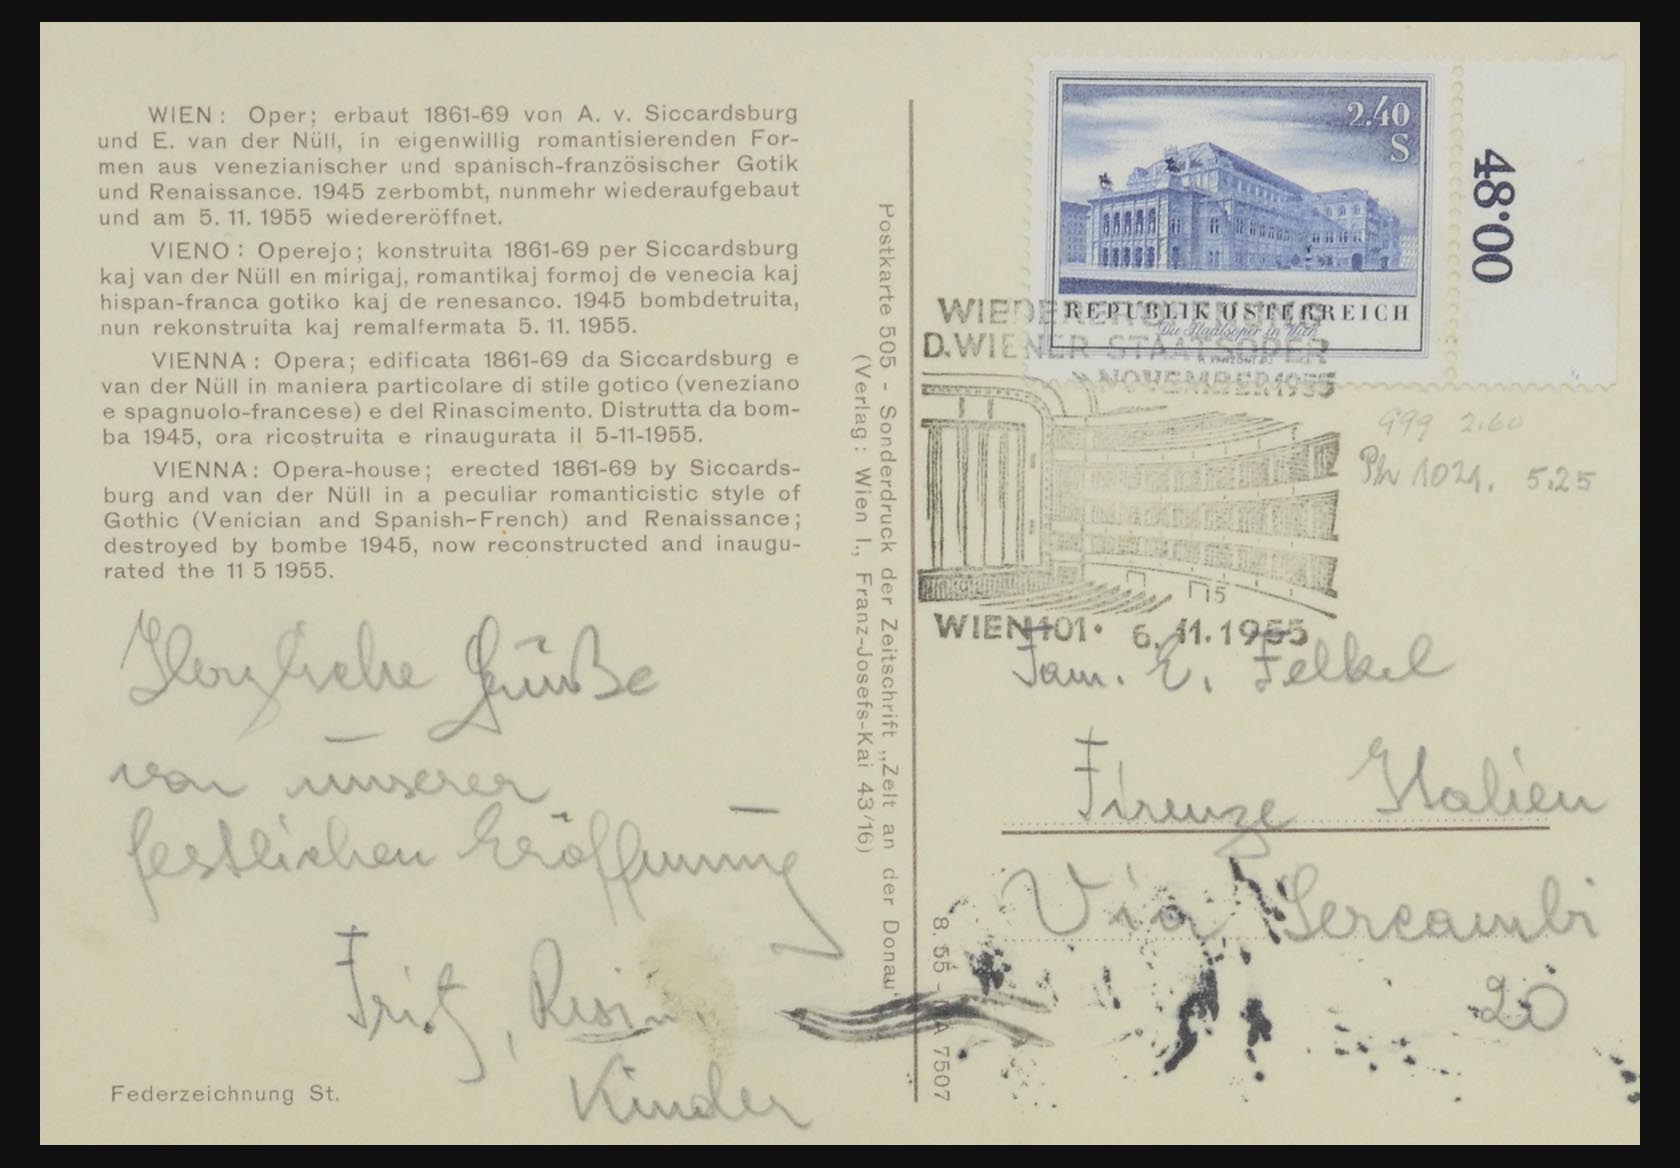 WIEN: Oper; erbaut 1861-69 von A. v. Siccardsburg
und E. van der Nüll, in eigenwillig romantisierenden For-
men aus venezianischer und spanisch-französischer Gotik
und Renaissance. 1945 zerbombt, nunmehr wiederaufgebaut
und am 5. 11. 1955 wiedereröffnet.
VIENO: Operejo; konstruita 1861-69 per Siccardsburg
kaj van der Nüll en mirigaj, romantikaj formoj de venecia kaj
hispan-franca gotiko kaj de renesanco. 1945 bombdetruita,
nun rekonstruita kaj remalfermata 5. 11. 1955.
VIENNA: Opera; edificata 1861-69 da Siccardsburg e
van der Nüll in maniera particolare di stile gotico (veneziano
e spagnuolo-francese) e del Rinascimento. Distrutta da bom-
ba 1945, ora ricostruita e rinaugurata il 5-11-1955.
VIENNA: Opera-house; erected 1861-69 by Siccards-
burg and van der Nüll in a peculiar romanticistic style of
Gothic (Venician and Spanish-French) and Renaissance;
destroyed by bombe 1945, now reconstructed and inaugu-
rated the 11 5 1955.
Herzliche Grüße
von unserer
festlichen Eröffnung
Fritz, Resi u.
Kinder
Federzeichnung St.
Postkarte 505 - Sonderdruck der Zeitschrift „Zelt an der Donau"
(Verlag: Wien I., Franz-Josefs-Kai 43/16)
8. 55 - A 7507
2.40
S
REPUBLIK ÖSTERREICH
Die Staatsoper in Wien
48·00
WIEDERERÖFFNUNG
D. WIENER STAATSOPER
NOVEMBER 1955
15
WIEN 101 · 6. 11. 1955
999 2.60
Ph 1021. 5.25
Fam. E. Felkel
Firenze Italien
Via Sercambi
20